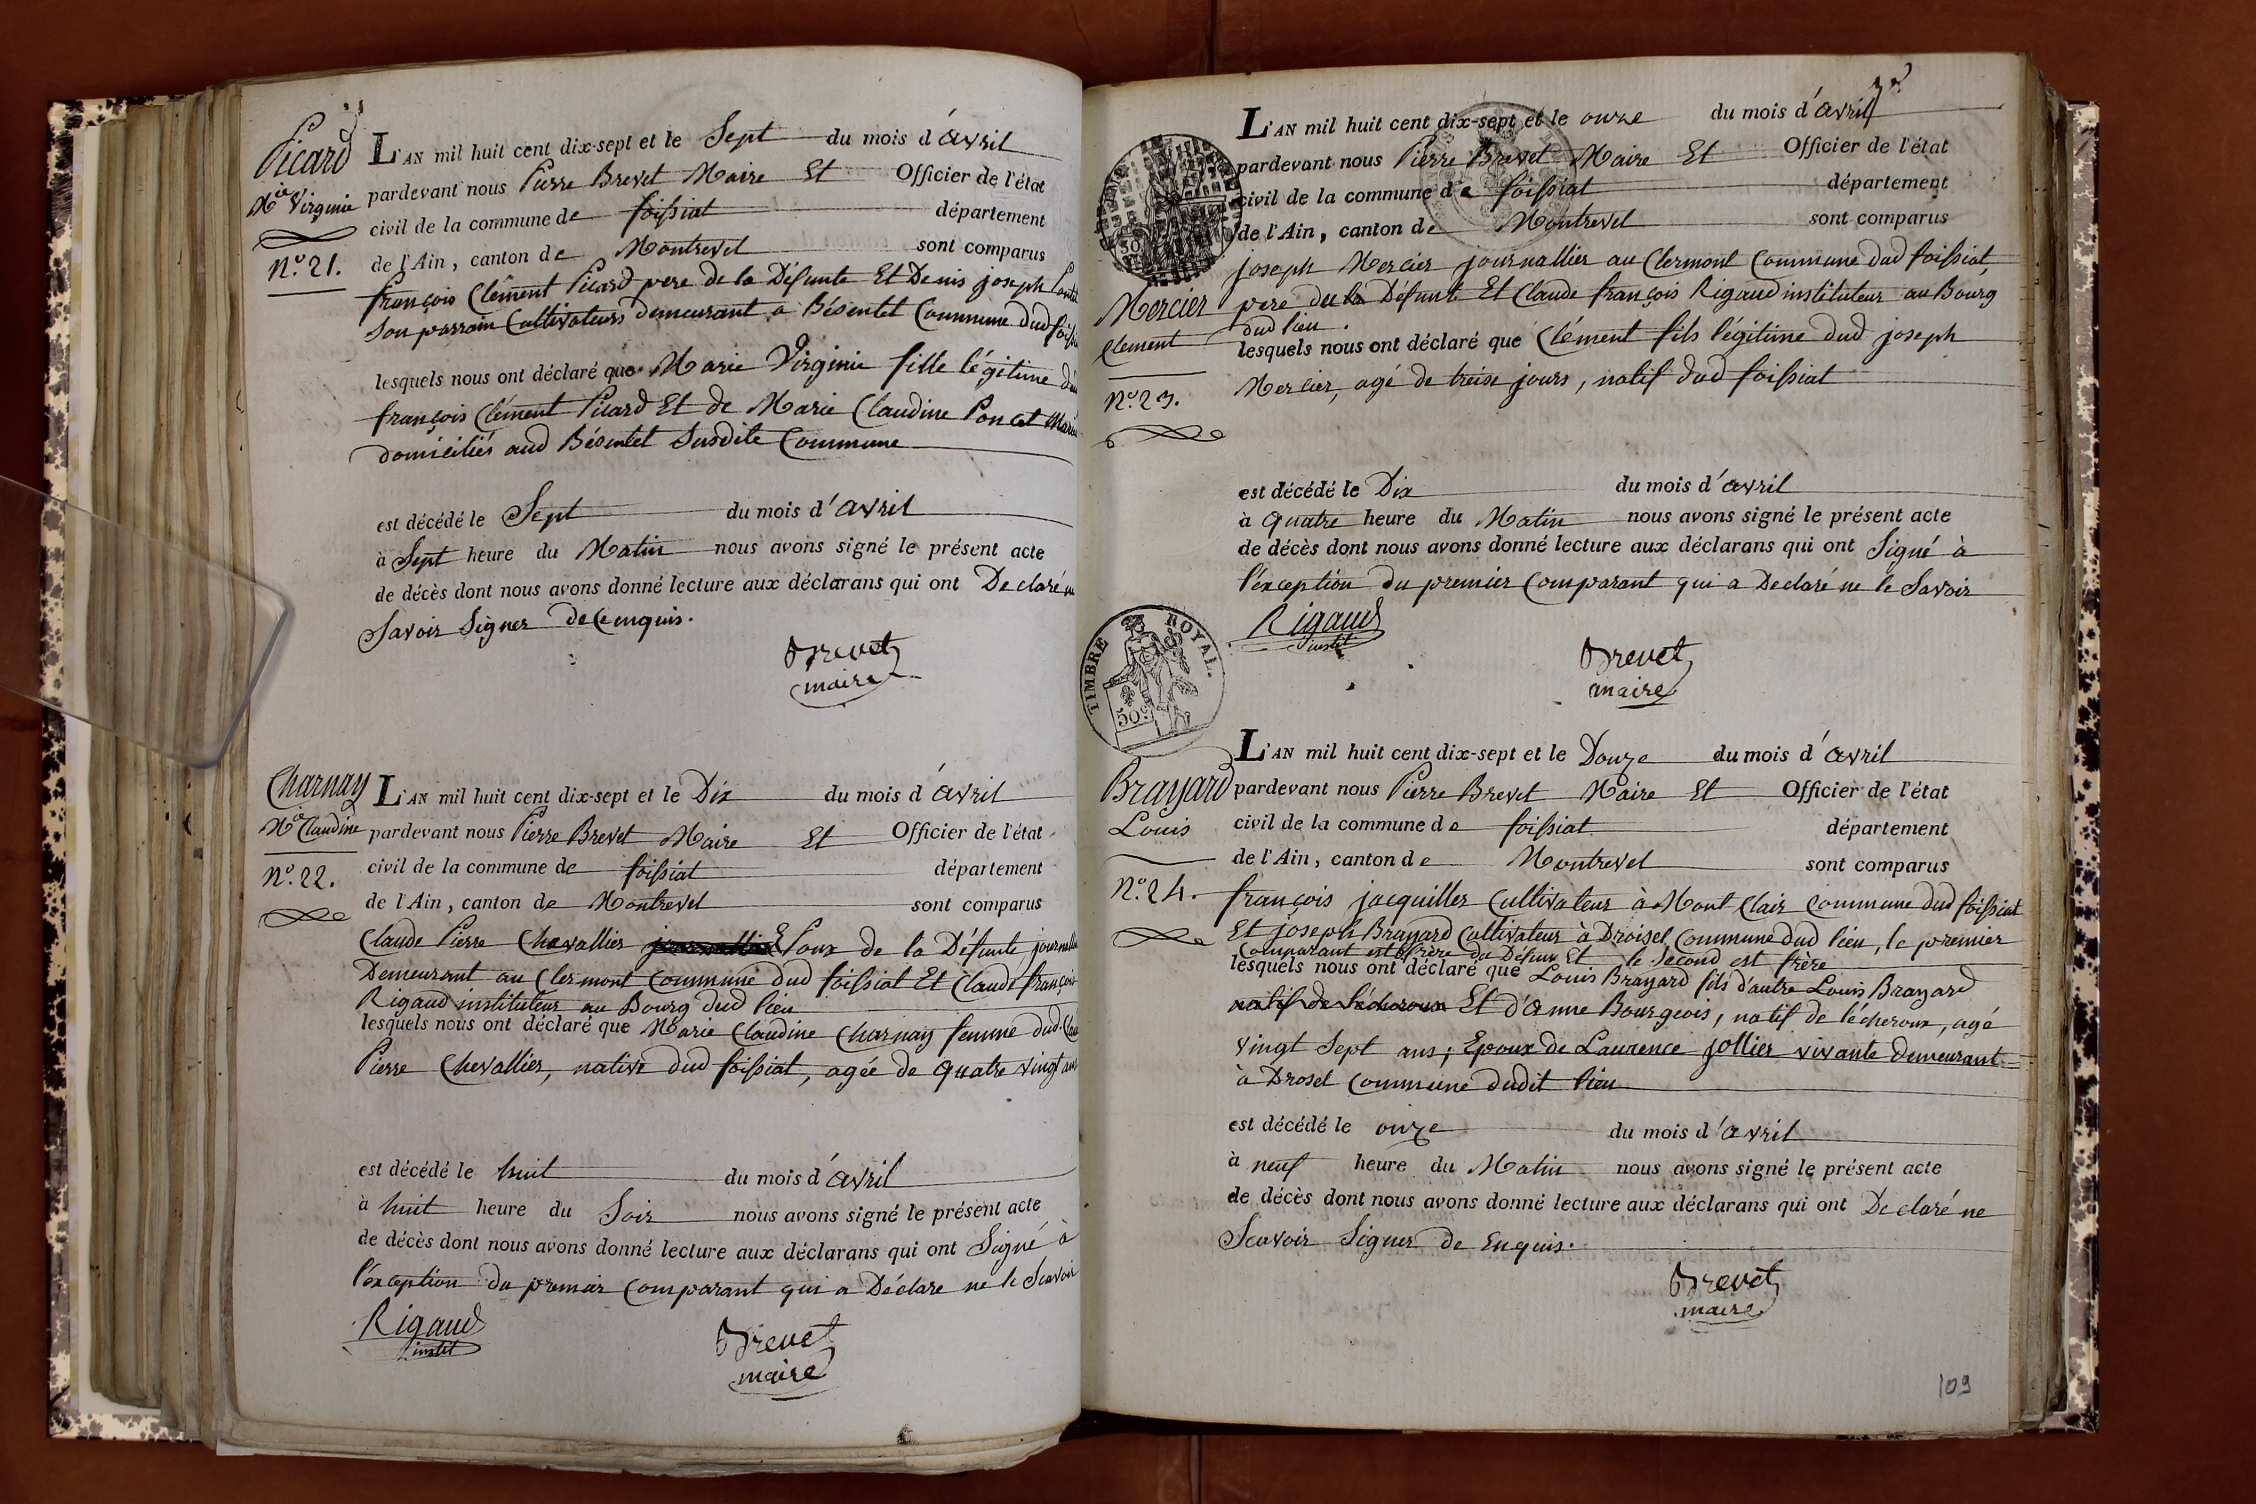 Picard
Mie Virginie
N.° 21.
L'AN mil huit cent dix-sept et le Sept du mois d'avril
pardevant nous Pierre Brevet Maire Et Officier de l'état
civil de la commune de foissiat département
de l'Ain, canton de Montrevel sont comparus
françois Clément Picard pere de la Défunte Et Denis joseph
Son parrain Cultivateurs Demeurant a Bésentet Commune dud
lesquels nous ont déclaré que Marie Virginie fille légitime
françois Clément Picard Et de Marie Claudine Poncet
domiciliés aud Bésentet Susdite Commune
est décédé le Sept du mois d'avril
à Sept heure du Matin nous avons signé le présent acte
de décès dont nous avons donné lecture aux déclarans qui ont Declaré ne
Savoir Signer de Cenquis.
Brevet
maire
Charnay
Mie Claudine
N.° 22.
L'AN mil huit cent dix-sept et le Dix du mois d'avril
pardevant nous Pierre Brevet Maire Et Officier de l'état
civil de la commune de foissiat département
de l'Ain, canton de Montrevel sont comparus
Claude Pierre Chevallier Epoux de la Défunte
Demeurant au Clermont Commune dud foissiat Et Claude françois
Rigaud instituteur au Bourg dud lieu
lesquels nous ont déclaré que Marie Claudine Charnay femme dud
Pierre Chevallier, native dud foissiat, agée de quatre vingt ans
est décédé le huit du mois d'avril
à huit heure du Soir nous avons signé le présent acte
de décès dont nous avons donné lecture aux déclarans qui ont Signé à
l'éxception du premier Comparant qui a Déclare ne le Scavoir
Rigaud
instit
Brevet
maire
L'AN mil huit cent dix-sept et le onze du mois d'avril
pardevant nous Pierre Brevet Maire Et Officier de l'état
civil de la commune de foissiat département
de l'Ain, canton de Montrevel sont comparus
joseph Mercier journallier au Clermont Commune dud foissiat,
Mercier
clement
N.° 23.
pere du la Défunt Et Claude françois Rigaud instituteur au Bourg
dud lieu.
lesquels nous ont déclaré que Clément fils légitime dud joseph
Mercier, agé de treise jours, natif dud foissiat
est décédé le Dix du mois d'avril
à quatre heure du Matin nous avons signé le présent acte
de décès dont nous avons donné lecture aux déclarans qui ont Signé à
l'éxception du premier Comparant qui a Declaré ne le Savoir
Rigaud
instit
Brevet
maire
TIMBRE ROYAL.
50
Brayard
Louis
N.° 24.
L'AN mil huit cent dix-sept et le Douze du mois d'avril
pardevant nous Pierre Brevet Maire Et Officier de l'état
civil de la commune de foissiat département
de l'Ain, canton de Montrevel sont comparus
françois jacquiller Cultivateur à Mont Clair Commune dud foissiat
Et joseph Brayard Cultivateur à Droisel, Commune dud lieu, le premier
Comparant est frère du Défunt Et le Second est frère
lesquels nous ont déclaré que Louis Brayard fils d'autre Louis Brayard
natif de lécheroux Et d'anne Bourgeois, natif de lécheroux, agé
vingt Sept ans; Epoux de Laurence jollier vivante Demeurant
à Drosel Commune dudit lieu
est décédé le onze du mois d'avril
à neuf heure du Matin nous avons signé le présent acte
de décès dont nous avons donné lecture aux déclarans qui ont Declaré ne
Scavoir Signer de Enquis.
Brevet
maire
109